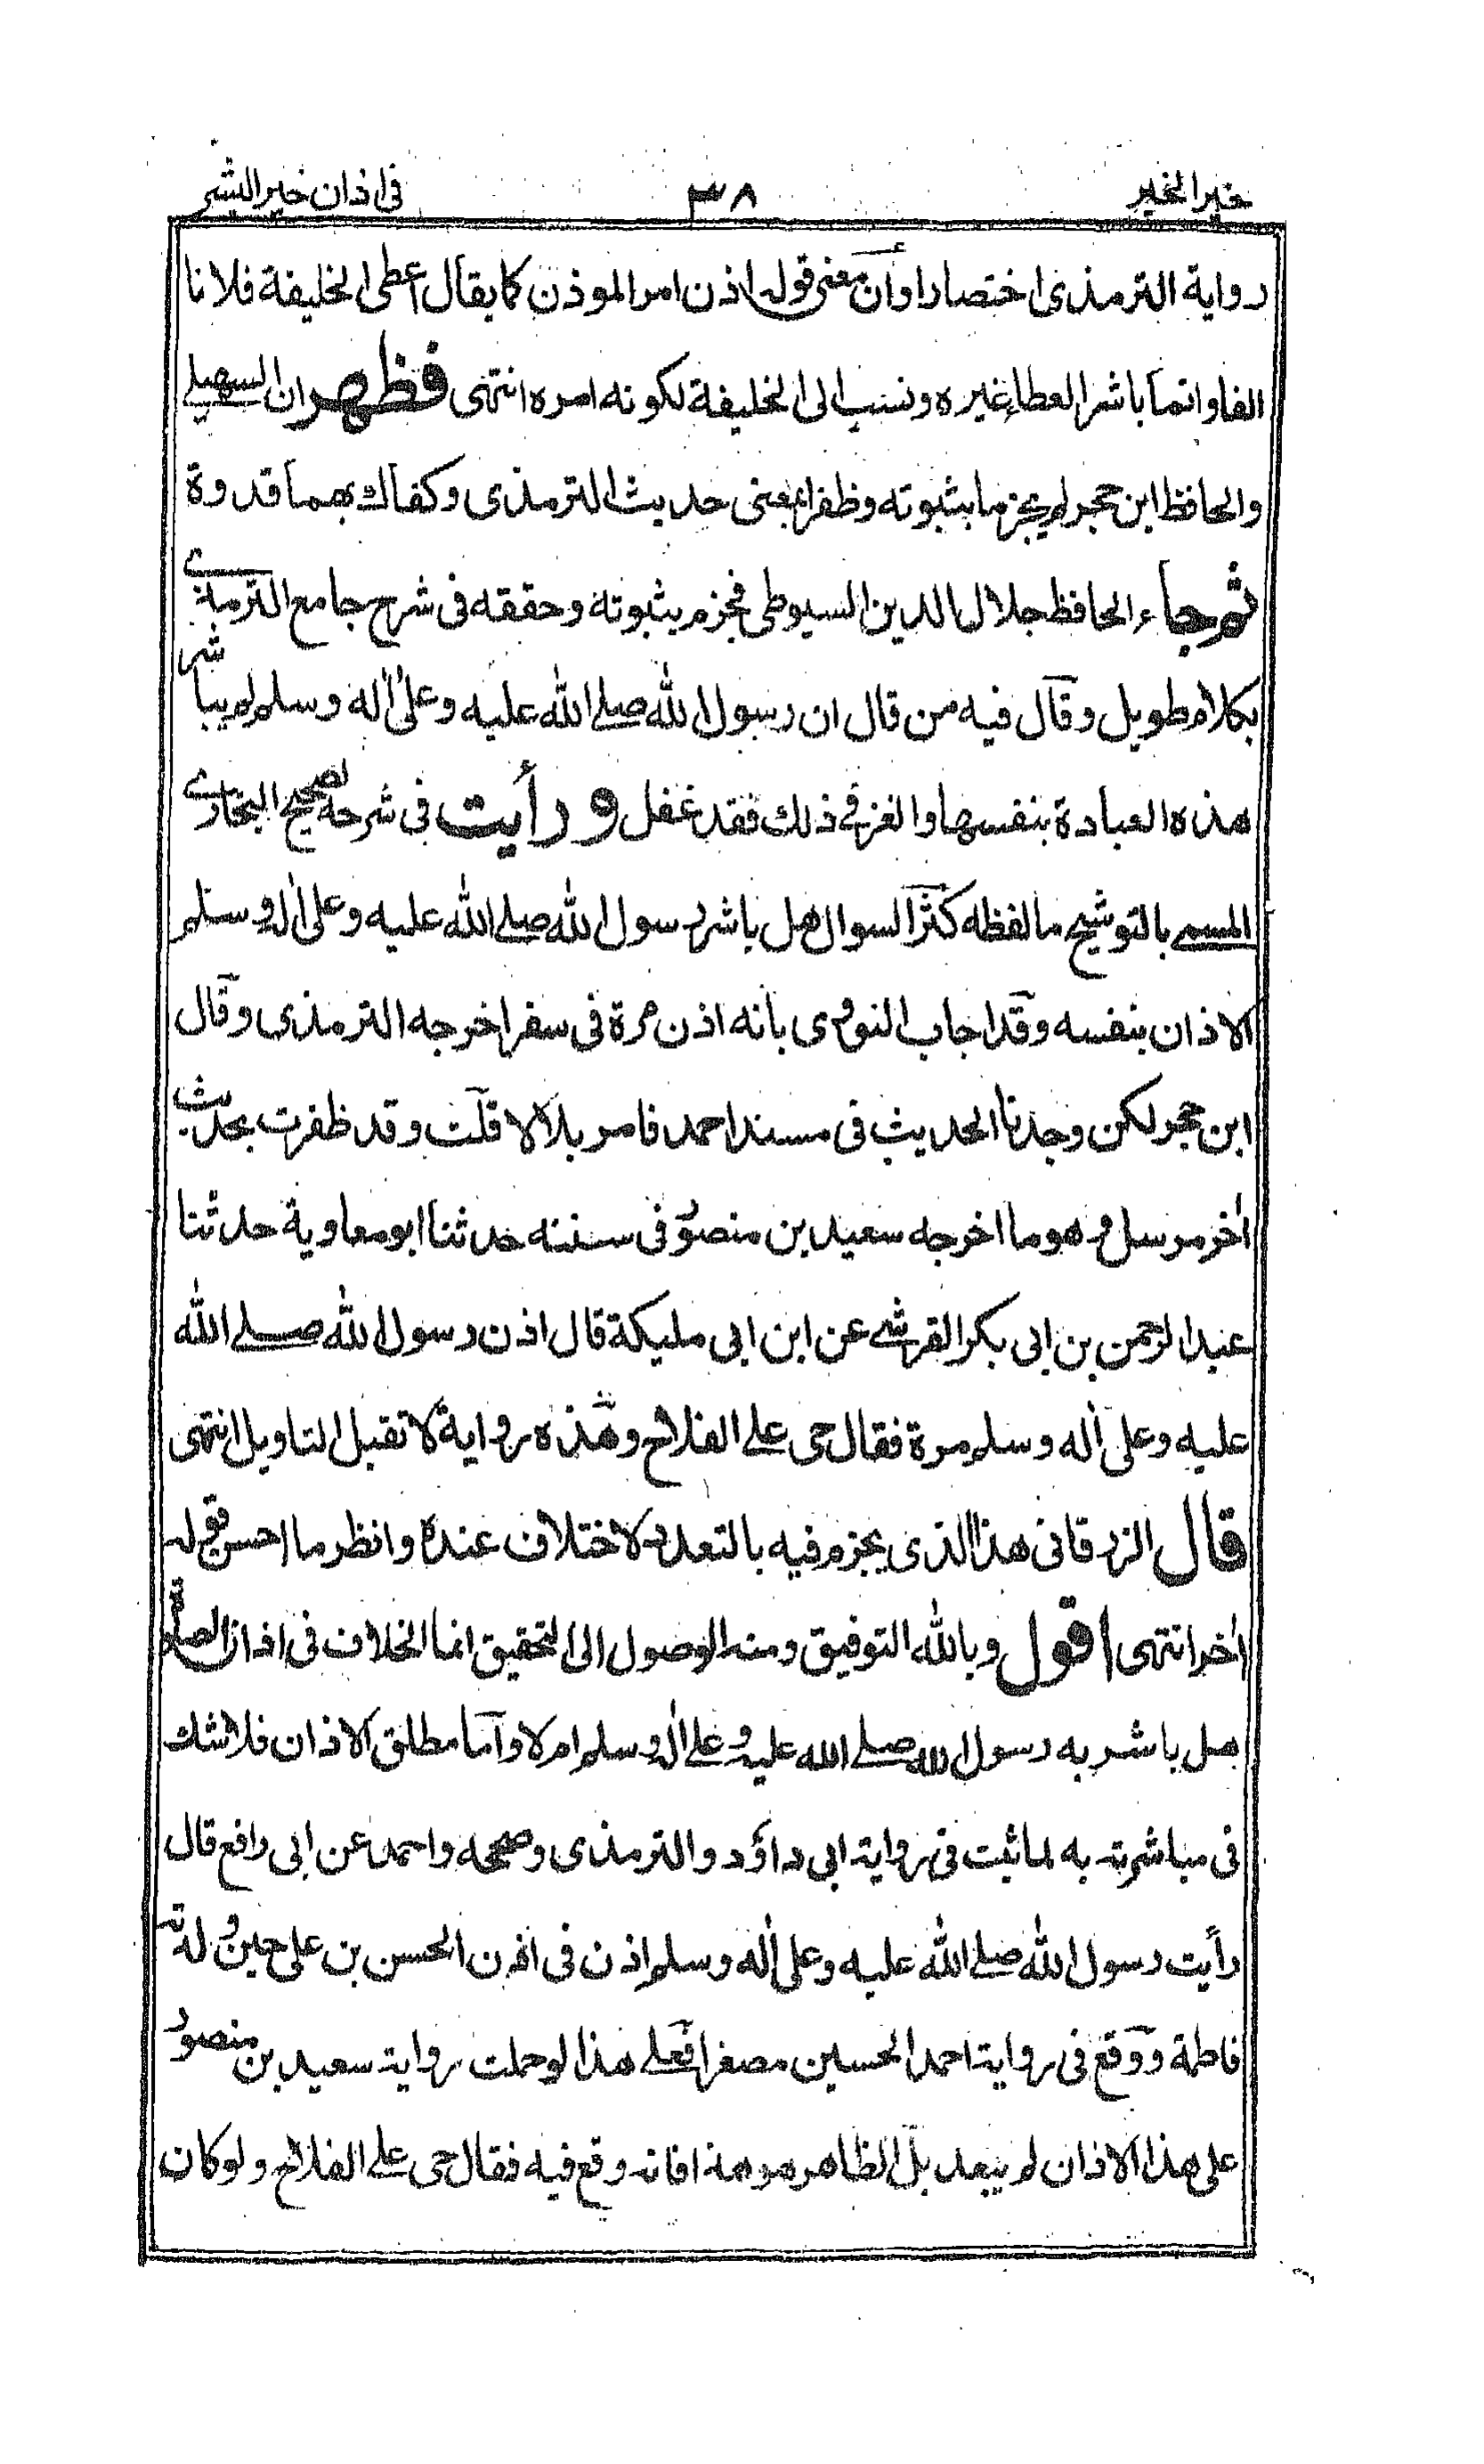 خير الخير ٣٨ فى اذان خير البشر
رواية الترمذى اختصارا وأن معنى قوله اذن امر الموذن كما يقال اعطى الخليفة فلانا
الفا وانما باشر العطاء غيره ونسب الى الخليفة لكونه امره انتهى فظهر ان السهيلے
والحافظ ابن حجر لم يجزما بثبوته وظفرا بمعنى حديث الترمذى وكفاك بهما قدوة
ثم جاء الحافظ جلال الدين السيوطى فجزم بثبوته وحققه فى شرح جامع الترمذے
بكلام طويل وقال فيه من قال ان رسول الله صلے الله عليه وعلى اٰله وسلم لم يباشر
هذه العبادة بنفسها والغز فے ذلك فقد غفل ورأيت فى شرحه لصحيح البخارے
المسمے بالتوشيح ما لفظه كثر السوال هل باشر رسول الله صلے الله عليه وعلى اٰله وسلم
الاذان بنفسه وقد اجاب النووى بانه اذن مرة فى سفر اخرجه الترمذى وقال
ابن حجر لكن وجدنا الحديث فى مسند احمد فامر بلالا قلت وقد ظفرت بحديث
اٰخر مرسل وهو ما اخرجه سعيد بن منصور فى سننه حدثنا ابو معاوية حدثنا
عبد الرحمن بن ابى بكر القرشے عن ابن ابى مليكة قال اذن رسول الله صلے الله
عليه وعلى اٰله وسلم مرة فقال حى علے الفلاح وهذه رواية لا تقبل التاويل انتهى
قال الزرقانى هذا الذى يجزم فيه بالتعدد لاختلاف عنده وانظر ما احسن قوله
اٰخر انتهى اقول وبالله التوفيق ومنه الوصول الى التحقيق انما الخلاف فى اذان الصلٰوة
هل باشر به رسول الله صلے الله عليه وعلے اٰله وسلم ام لا واما مطلق الاذان فلا شك
فى مباشرته به لما ثبت فى رواية ابى داؤد والترمذى وصححه واحمد عن ابى رافع قال
رأيت رسول الله صلے الله عليه وعلى اٰله وسلم اذن فى اذن الحسن بن على حين ولدته
فاطمة ووقع فى رواية احمد الحسين مصغرا فعلے هذا لو حملت رواية سعيد بن منصور
على هذا الاذان لم يبعد بل الظاهر هو هذا فانه وقع فيه فقال حى علے الفلاح ولو كان